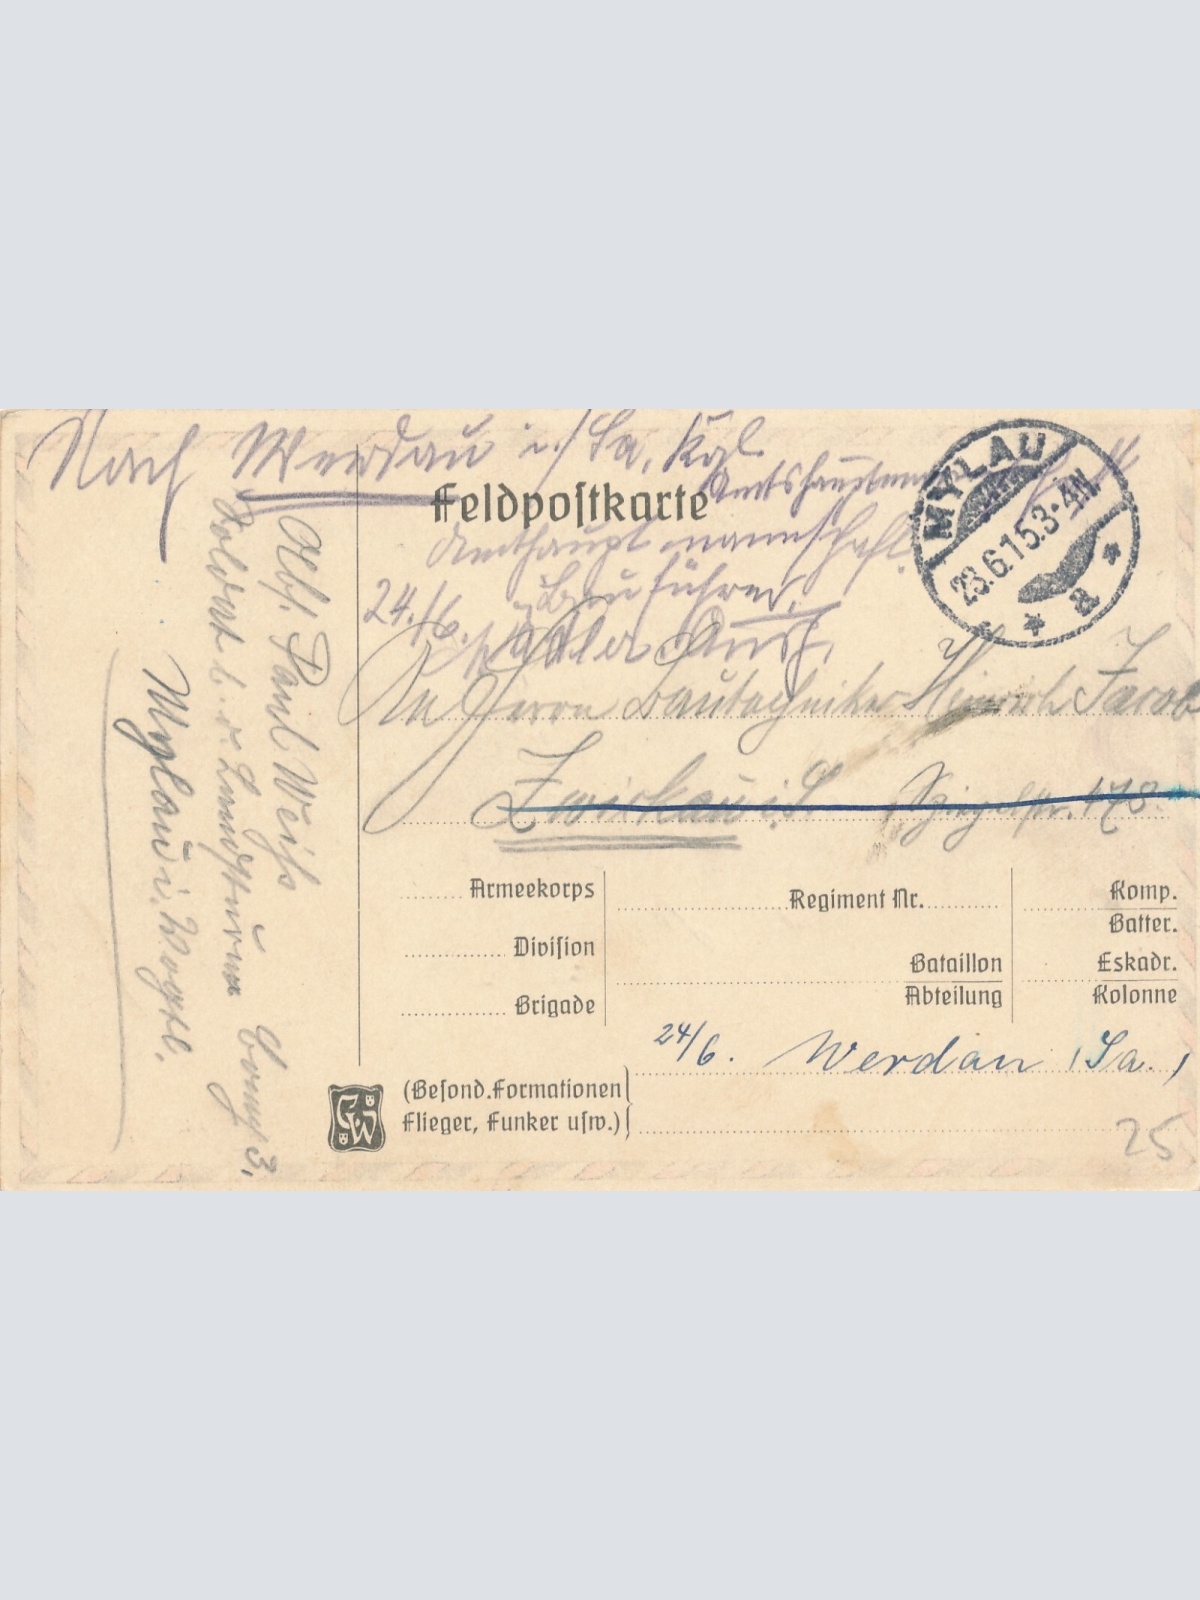 Nach Werdau i./Sa. Kgl.
Feldpostkarte
Amtshauptmannschaft.
24./6. Bauführer.
MYLAU
23.6.15.3-4N
* a *
An Herrn Bautechniker Heinrich Jacob
Zwickau i. S.
Armeekorps
Division
Brigade
Regiment Nr.
Bataillon
Abteilung
Komp.
Batter.
Eskadr.
Kolonne
24/6. Werdau (Sa.)
(Besond. Formationen
Flieger, Funker usw.)
GW
25
Abs. Paul Weiss
Soldat b. d. Landsturm Comp 3.
Mylau i. Vogtl.